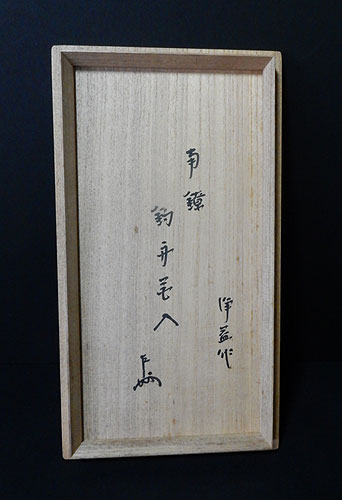 浄益作
南鐐
釣舟花入